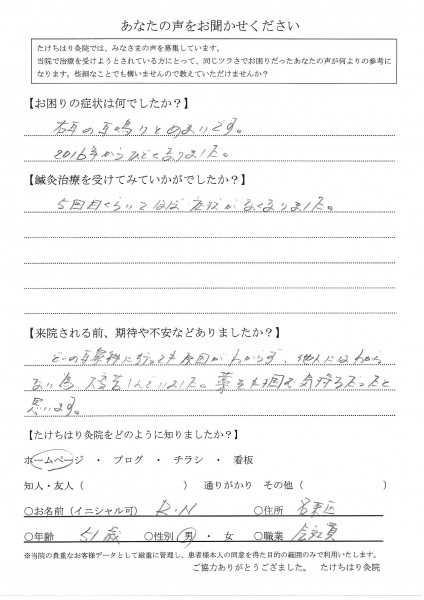 あなたの声をお聞かせください
たけちはり灸院では、みなさまの声を募集しています。
当院で治療を受けようとされている方にとって、同じツラさでお困りだったあなたの声が何よりの参考に
なります。些細なことでも構いませんので教えていただけませんか？
【お困りの症状は何でしたか？】
右耳の耳鳴りとめまいです。
2016年からひどくなりました。
【鍼灸治療を受けてみていかがでしたか？】
5回目くらいでほぼ症状がなくなりました。
【来院される前、期待や不安などありましたか？】
どこの耳鼻科に行っても原因がわからず、他人にはわから
ない為、大変苦しんでいました。薬も
思います。
【たけちはり灸院をどのように知りましたか？】
ホームページ ・ ブログ ・ チラシ ・ 看板
知人・友人（ ） 通りがかり その他（ ）
○お名前（イニシャル可） R.N ○住所 名東区
○年齢 51歳 ○性別 男 ・ 女 ○職業 会社員
※当院の貴重なお客様データとして厳重に管理し、患者様本人の同意を得た目的の範囲のみで利用いたします。
ご協力ありがとうござました。 たけちはり灸院